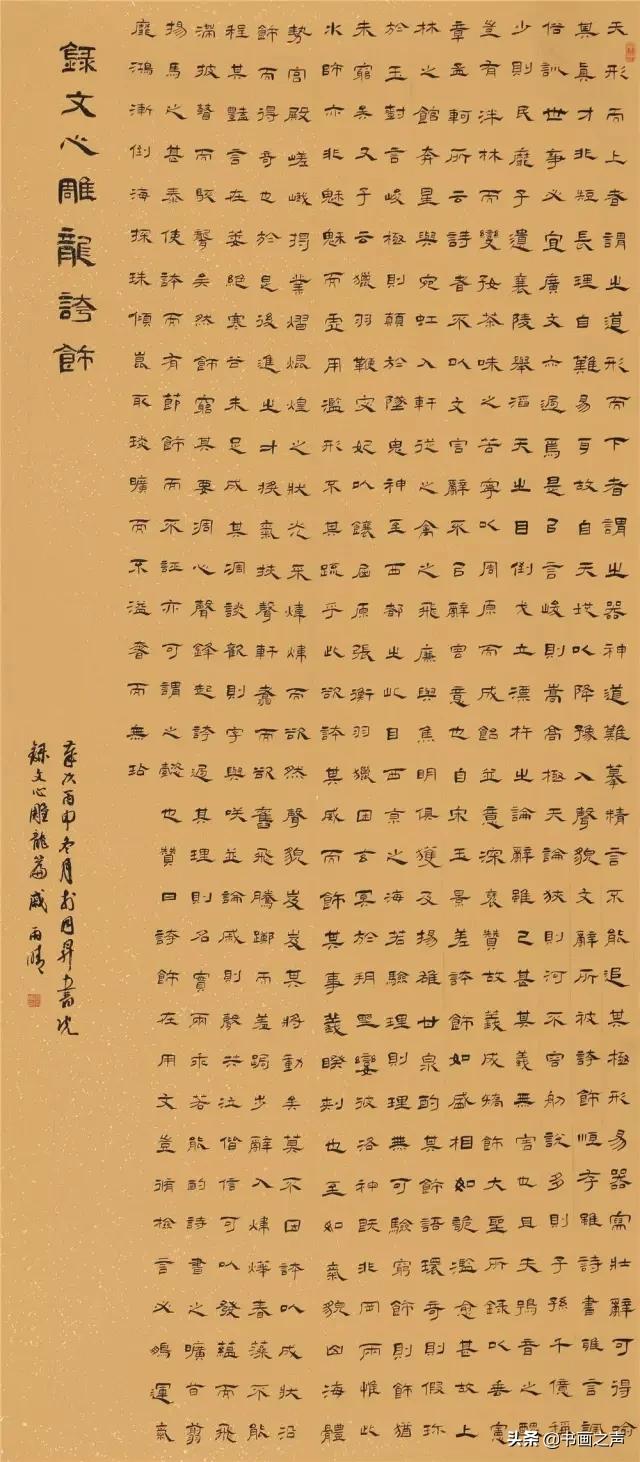 天形而上者謂之道形而下者謂之器神道難摹精言不能追其極形易器寫壯辭可得喻
其真才非短長理自難易耳故自天地以降豫入聲貌文辭所被誇飾恒存雖詩書雅言諷
俗訓世事必宜廣文亦過焉是以言峻則嵩高極天論狹則河不容舠說多則子孫千億稱
少則民靡子遺襄陵舉滔天之目倒戈立漂杵之論辭雖已甚其義無害也且夫鴞音之醜
豈有泮林而變好荼味之苦寧以周原而成飴並意深褒贊故義成矯飾大聖所錄以垂憲
章孟軻所云詩者不以文害辭不以辭害意也自宋玉景差誇飾如盛相如詭濫愈甚故上
林之館奔星與宛虹入軒從之禽之飛廉與焦明俱獲及揚雄甘泉酌其飾語環奇則假珍
於玉對言峻極則顛於墜鬼神至西都之比目西京之海若驗理則理無可驗窮飾則飾猶
未窮矣又子云獵羽鞭宓妃以饟屈原張衡羽獵困玄冥於朔野孌彼洛神既非罔兩惟此
水師亦非魅魅而虛用濫形不其疏乎此欲誇其威而飾其事義睽刺也至如氣貌山海體
勢宮殿嵯峨揭業熠焜煌之狀光采煒煒而欲然聲貌岌岌其將動矣莫不因誇以成狀沿
飾而得奇也於是後進之才獎氣挾聲軒翥而欲奮飛騰擲而羞跼步辭入煒燁春藻不能
程其豔言在萎絕寒谷未足成其凋談歡則字與咲並論戚則聲共泣偕信可以發蘊而飛
滯披瞽而駭聾矣然飾窮其要凋心聲鋒起誇過其理則名實兩乖若能酌詩書之曠旨翦
揚馬之甚泰使誇而有節飾而不誣亦可謂之懿也贊曰誇飾在用文豈循檢言必鵬運氣
靡鴻漸倒海探珠傾崑取琰曠而不溢奢而無玷
錄文心雕龍誇飾
歲次丙申冬月於同昇書院
錄文心雕龍篇戚雨晴
头条 @书画之声